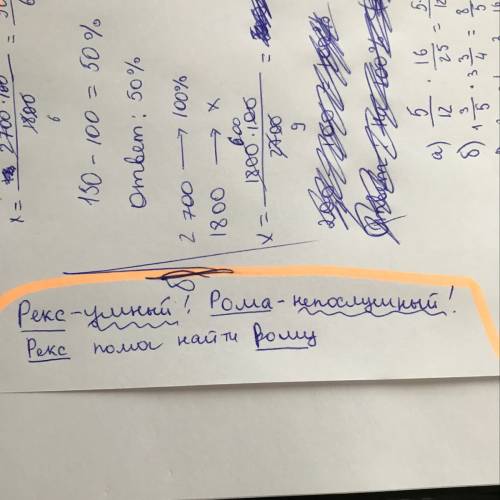 x = 2700·100 / 1800
6
150 - 100 = 50%
Ответ: 50%
2 700 → 100%
1800 → x
x = 1800·100 / 2700 =
9
а) 5/12 · 16/25 =
б) 1 3/5 · 3 3/4 = 8/5
Рекс - умный! Рома - непослушный!
Рекс помог найти Рому